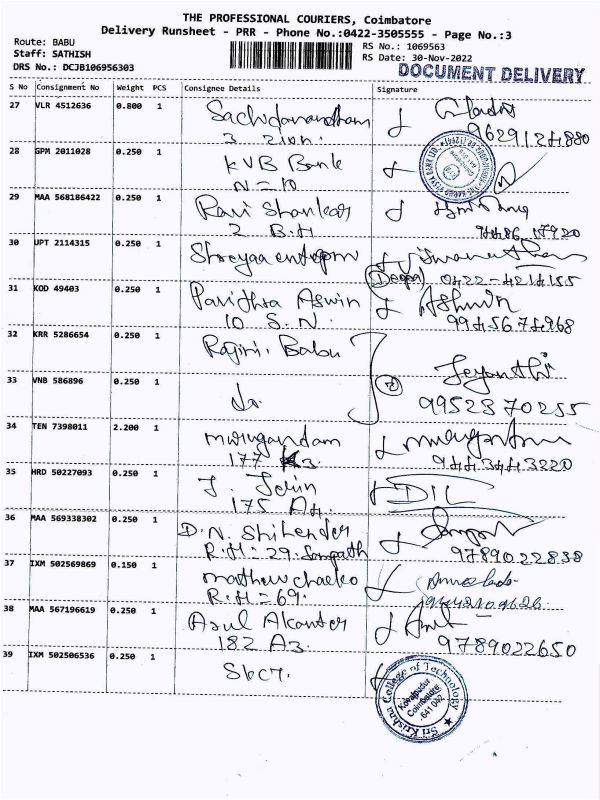 THE PROFESSIONAL COURIERS, Coimbatore
Delivery Runsheet - PRR - Phone No.:0422-3505555 - Page No.:3
Route: BABU
Staff: SATHISH
DRS No.: DCJB106956303
RS No.: 1069563
RS Date: 30-Nov-2022
DOCUMENT DELIVERY
S No Consignment No Weight PCS Consignee Details Signature
27 VLR 4512636 0.800 1
9629124880
28 GPM 2011028 0.250 1 KVB Bank
N = 10
29 MAA 568186422 0.250 1 Ravi Shankar
2 B.H
30 UPT 2114315 0.250 1 Shreyaa
0422-4214155
31 KOD 49403 0.250 1 Pavithra Aswin Ashwin
10 S.N. 9945674968
32 KRR 5286654 0.250 1 Rajini Babu
Jeyanthi
33 VNB 586896 0.250 1 2
do. 9952370255
34 TEN 7398011 2.200 1
177 9443443220
35 HRD 50227093 0.250 1 J. Jerin
175 A4
36 MAA 569338302 0.250 1 D.N. Shilender
R.H = 29. Sampath 9789022838
37 IXM 502569869 0.150 1
R.H = 69.
38 MAA 567196619 0.250 1
182 A3 9789022650
39 IXM 502506536 0.250 1
Sri Krishna College of Technology
Kovaipudur
Coimbatore
641 042